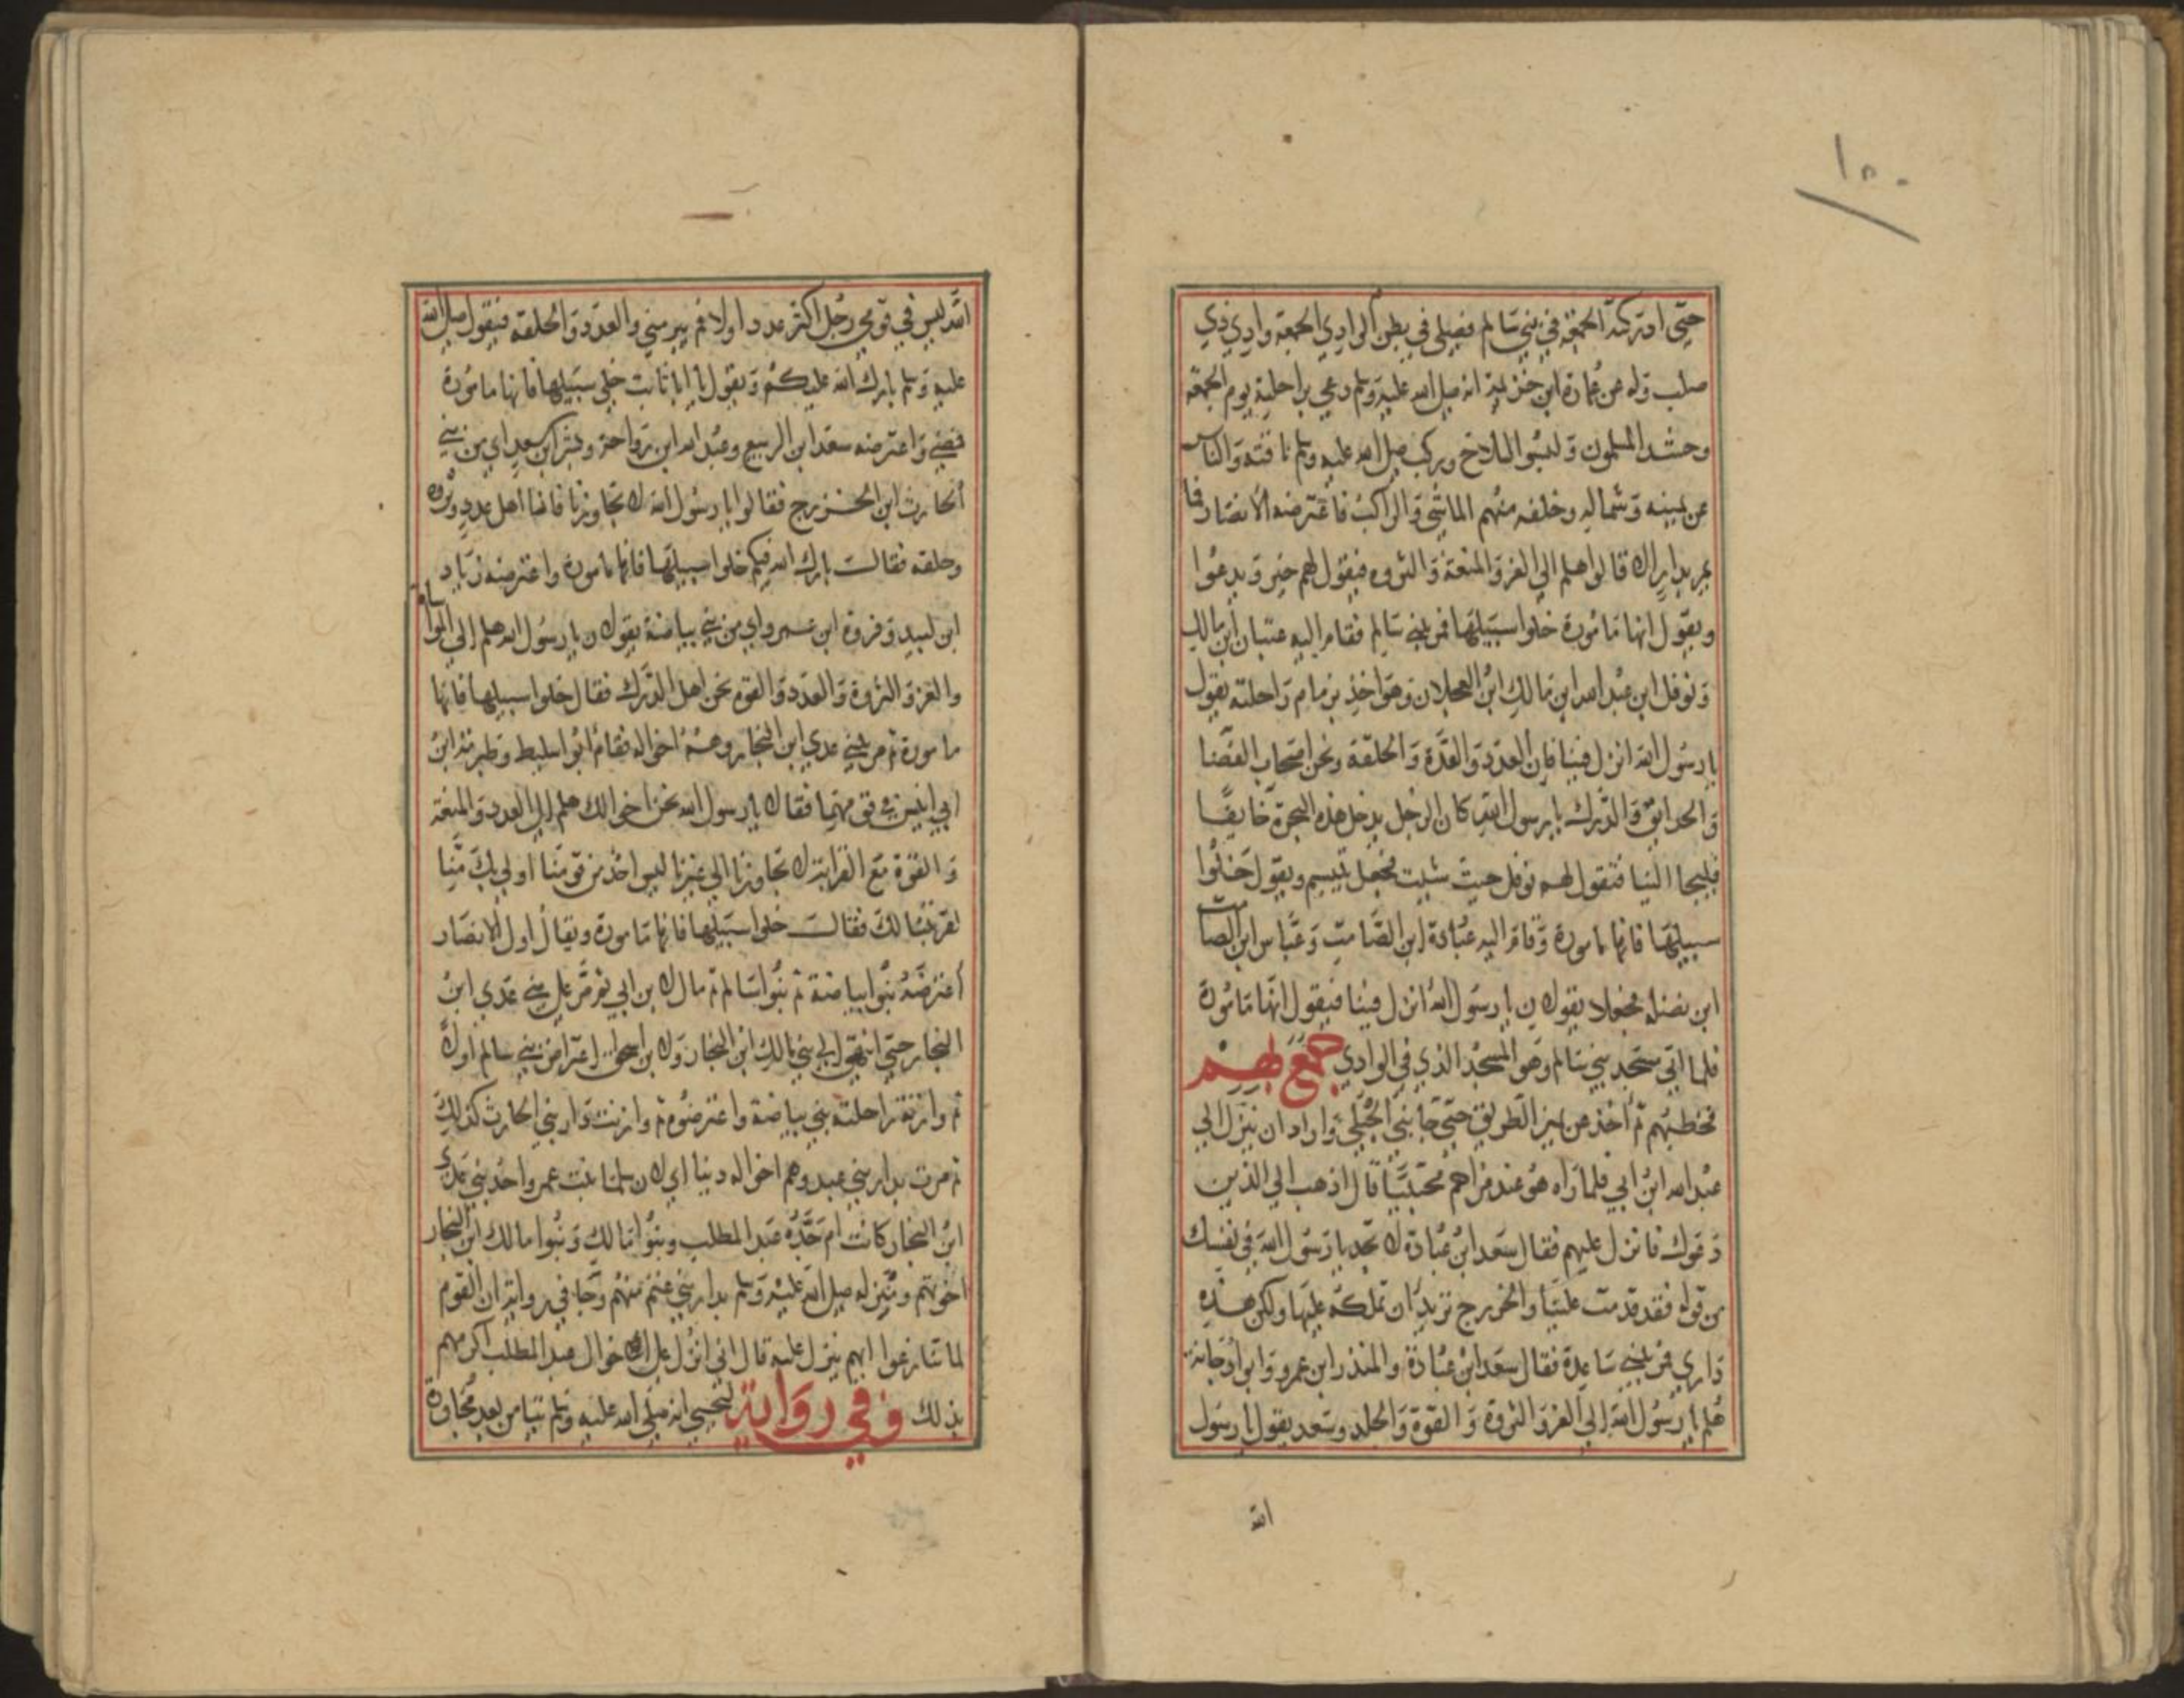 ١٥٠
حتى ادركته الجمعة في بني سالم فصلى في بطن الوادي الجمعة وادي ذي
صلب وله عن عمارة ابن خزيمة انه صلى الله عليه وسلم دعى براحلته يوم الجمعة
وحشد المسلمون ولبسوا السلاح وركب صلى الله عليه وسلم ناقته والناس
عن يمينه وشماله وخلفه منهم الماشي والراكب فاعترضه الانصار فما
يمر بدار الا قالوا هلم الى العز والمنعة والثروه فيقول لهم خير ويدعوا
ويقول انها مامورة خلوا سبيلها فمر ببني سالم فقام اليه عتبان ابن مالك
ونوفل ابن عبد الله ابن مالك ابن العجلان وهو اخذ بزمام راحلته يقول
يا رسول الله انزل فينا فان العدد والعدة والحلقة ونحن اصحاب الفضنا
والحدايق والدرك يا رسول الله كان الرجل يدخل هذه البحرة خايفا
فليجا الينا فنقول له نوفل حيث شيت فجعل تبسم ويقول خلوا
سبيلها فانها مامورة وقام اليه عبادة ابن الصامت وعباس ابن الصامت
ابن نضله فجعلا يقولان يا رسول الله انزل فينا فيقول انها مامورة
فلما اتى مسجد بني سالم وهو المسجد الذي في الوادي جمع بهم
فخطبهم ثم اخذ من يمين الطريق حتى جا بني الحبلي واراد ان ينزل الى
عبد الله ابن ابي فلما راه هو عند مزاحم محتبيا قال اذهب الى الذين
دعوك فانزل عليهم فقال سعد ابن عبادة لا تجد يا رسول الله في نفسك
من قوله فقد قدمت علينا والخزرج تريد ان تملكه عليها ولكن هذه
داري فمر ببني ساعدة فقال سعد ابن عبادة والمنذر ابن عمرو وابو دجانة
هلم يا رسول الله الى العز والثروة والقوة والجلد وسعد يقول يا رسول
الله
الله ليس في قومي رجل اكثر عددا ولا فم بير مني والعدد والحلقه فيقول صلى الله
عليه وسلم بارك الله عليكم ويقول يا ابا ثابت خلي سبيلها فانها مامورة
فمضى واعترضه سعد ابن الربيع وعبد الله ابن رواحة وبشر ابن سعد اي من بني
الحارث ابن الخزرج فقالوا يا رسول الله لا تجاوزنا فانا اهل عدد وثروه
وحلقه فقالت بارك الله فيكم خلوا سبيلها فانها مامورة واعترضه زياد
ابن لبيد وفروة ابن عمرو اي من بني بياضة يقولان يا رسول الله هلم الى المواساة
والعز والثروة والعدد والقوه نحن اهل الدرك فقال خلوا سبيلها فانها
مامورة ثم مر ببني عدي ابن النجار وهم اخواله فقام ابو سليط وصرمة ابن
ابي انيس في قومهما فقالا يا رسول الله نحن اخوالك هلم الى العدد والمنعة
والقوة مع القرابة لا تجاوزنا الى غيرنا ليس احد من قومنا اولى بك منا
لقرابتنا لك فقالت خلوا سبيلها فانها مامورة ويقال اول الانصار
اعترضه بنوا بياضة ثم بنوا سالم ثم مال لابن ابي ثم مر على بني عدي ابن
النجار حتى انتهى الى بني مالك ابن النجار ولابن اسحاق اعتراض بني سالم اولا
ثم وازنة راحلته بني بياضة واعترضوه ثم وازنت دار بني الحارث كذلك
ثم مرت بدار بني عبد وهم اخواله دنيا اي لان سلما بنت عمرو احد بني عدي
ابن النجار كانت ام جده عبد المطلب وبنوا مالك وبنوا مالك ابن النجار
اخوتهم ومنزله صلى الله عليه وسلم بدار بني غنم منهم وجا في رواية ان القوم
لما تنازعوا ايهم ينزل عليه قال اني انزل على اخوال عبد المطلب اكرمهم
بذلك وفي رواية ليحيى انه صلى الله عليه وسلم تيامن بعد مجاوزة